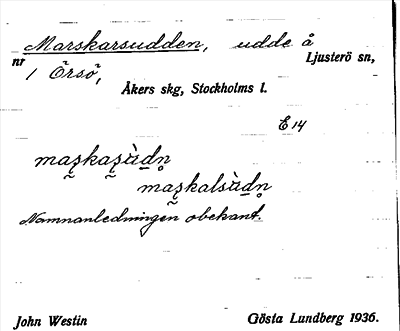 Marskarsudden, udde å
nr 1 Örsö, Ljusterö sn,
Åkers skg, Stockholms l.
E 14
mas̬kas̬ùdn̥
mas̬kalsùdn̥
Namnanledningen obekant.
John Westin Gösta Lundberg 1936.